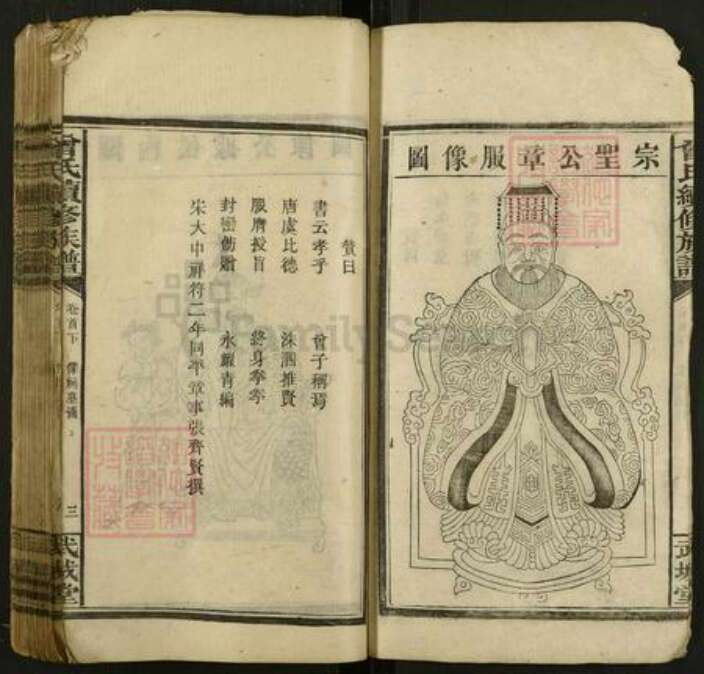 宗聖公章服像圖
曾氏續修族譜
武城堂
贊曰
書云孝乎 曾子稱焉
唐虞比德 洙泗推賢
服膺授旨 終身拳拳
封巒飭贈 永耀青編
宋大中祥符二年同平章事張齊賢撰
曾氏續修族譜
卷首下
三
武城堂
FamilySearch